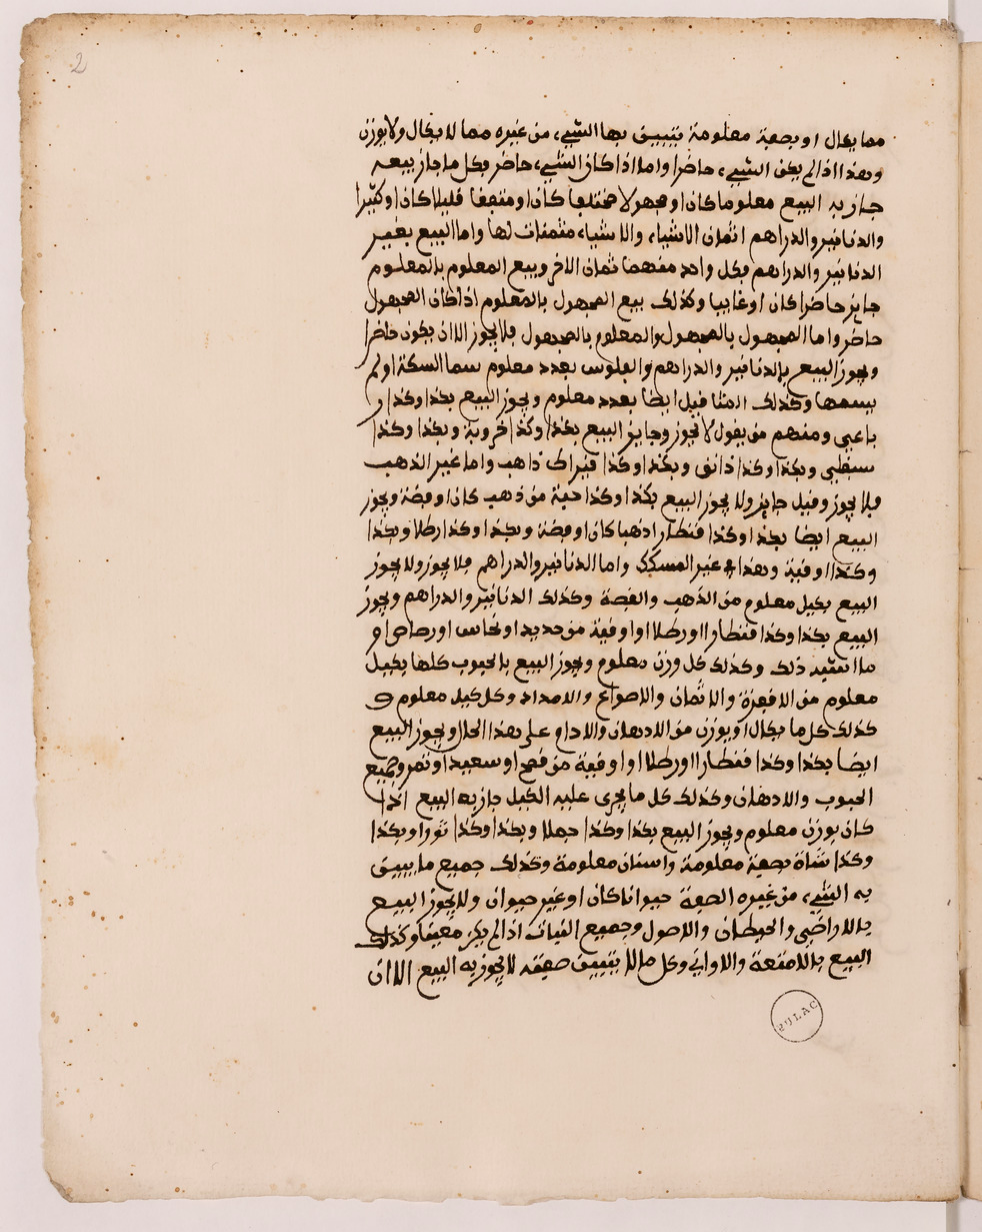 2
مما يكال او بصفة معلومة يتبين بها الشيء من غيره مما لا يكال ولا يوزن
وهذا اذا لم يكن الشيء حاضرا واما اذا كان الشيء حاضر فكل ما جاز بيعه
جاز به البيع معلوما كان او مجهولا مختلفا كان او متفقا قليلا كان او كثيرا
والدنانير والدراهم اثمان الاشياء والاشياء مثمنات لها واما البيع بغير
الدنانير والدراهم فكل واحد منهما ثمان الاخر وبيع المعلوم بالمعلوم
جايز حاضرا كان او غايبا وكذلك بيع المجهول بالمعلوم اذا كان المجهول
حاضر واما المجهول بالمجهول والمعلوم بالمجهول فلا يجوز الا ان يكون حاضرا
ويجوز البيع بالدنانير والدراهم والفلوس بعدد معلوم سما السكة او لم
يسمها وكذلك المثاقيل ايضا بعدد معلوم ويجوز البيع بكذا وكذا ر
باعي ومنهم من يقول لا يجوز وجايز البيع بكذا وكذا خروبة وبكذا وكذا
وبكذا وكذا دانق وبكذا وكذا قيراط ذاهب واما غير الذهب
فلا يجوز وقيل جايز ولا يجوز البيع بكذا وكذا حبة من ذهب كان او فضة ويجوز
البيع ايضا بكذا وكذا قنطارا ذهبا كان او فضة وبكذا وكذا رطلا وبكذا
وكذا اوقية وهذا في غير المسكك واما الدنانير والدراهم فلا يجوز ولا يجوز
البيع بكيل معلوم من الذهب والفضة وكذلك الدنانير والدراهم ويجوز
البيع بكذا وكذا قنطارا او رطلا او اوقية من حديد او نحاس او رصاص او
ما اشبه ذلك وكذلك كل وزن معلوم ويجوز البيع بالحبوب كلها بكيل
معلوم من الاقفزة والاثمان والاصواع والامداد وكل كيل معلوم و
كذلك كل ما يكال او يوزن من الادهان والادام على هذا الحال ويجوز البيع
ايضا بكذا وكذا قنطارا او رطلا او اوقية من قمح او سعيد او تمر وجميع
الحبوب والادهان وكذلك كل ما يجرى عليه الكيل جاز به البيع اذا
كان بوزن معلوم ويجوز البيع بكذا وكذا جملا وبكذا وكذا ثورا وبكذا
وكذا شاة بصفة معلومة واسنان معلومة وكذلك جميع ما يبين
به الشيء من غيره الصفة حيوانا كان او غير حيوان ولا يجوز البيع
بالاراضي والحيطان والاصول وجميع الثياب اذا لم يكن معينا وكذلك
البيع بالامتعة والاواني وكل ما لا يتبين صفته لا يجوز به البيع الا ان
BULAC